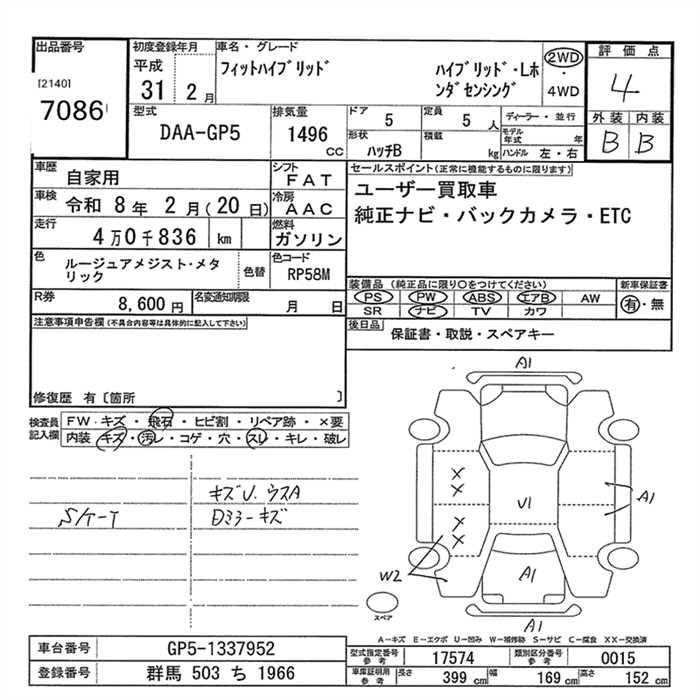 出品番号
[2140]
7086
初度登録年月
平成
31 2 月
車名・グレード
フィットハイブリッド
ハイブリッド・Lホ
ンダセンシング
2WD
・
4WD
評価点
4
外装 内装
B B
型式
DAA-GP5
排気量
1496
CC
ドア
5
定員
5 人
形状
ハッチB
積載
kg
ディーラー・並行
モデル年式 年
ハンドル 左・右
車歴
自家用
シフト
FAT
車検
令和 8 年 2 月(20 日)
冷房
AAC
走行
4万0千836 km
燃料
ガソリン
色
ルージュアメジスト・メタ
リック
色替
色コード
RP58M
R券
8,600 円
名変通知期限
月 日
セールスポイント(正常に機能するものに限ります)
ユーザー買取車
純正ナビ・バックカメラ・ETC
装備品 (純正品に限り○をつけてください)
PS PW ABS エアB AW
SR ナビ TV カワ
新車保証書
有・無
後日品
保証書・取説・スペアキー
注意事項申告欄(不具合内容等は具体的に記入して下さい)
修復歴 有〔箇所 〕
検査員
記入欄
FW・キズ・飛石・ヒビ割・リペア跡・×要
内装・キズ・汚レ・コゲ・穴・スレ・キレ・破レ
キズU.ウスA
Dミラーキズ
A1
A1
U1
W2
A1
A1
スペア
A-キズ E-エクボ U-凹み W-補修跡 S-サビ C-腐食 XX-交換済
車台番号
GP5-1337952
登録番号
群馬 503 ち 1966
型式指定番号
参考
17574
類別区分番号
参考
0015
車庫証明用
参考
長さ
399 cm
幅
169 cm
高さ
152 cm